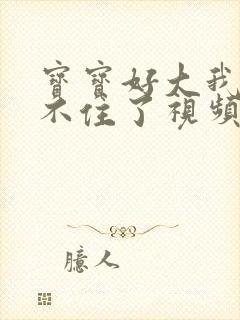 寶寶好大我
不住了視頻
臆人